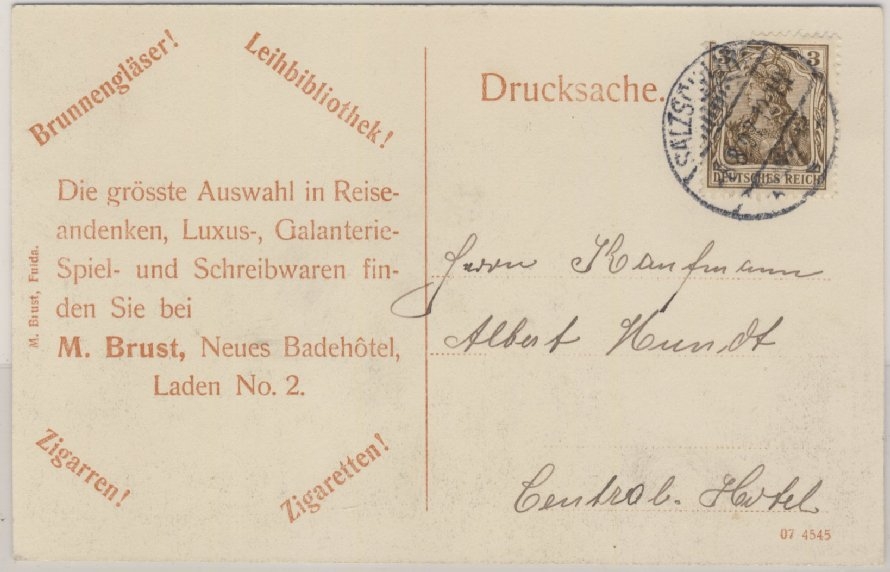 Brunnengläser!
Leihbibliothek!
Die grösste Auswahl in Reise-
andenken, Luxus-, Galanterie-
Spiel- und Schreibwaren fin-
den Sie bei
M. Brust, Neues Badehôtel,
Laden No. 2.
Zigarren!
Zigaretten!
M. Brust, Fulda.
Drucksache.
3
DEUTSCHES REICH
Herrn Kaufmann
Albert Hundt
Central-Hotel
07 4545